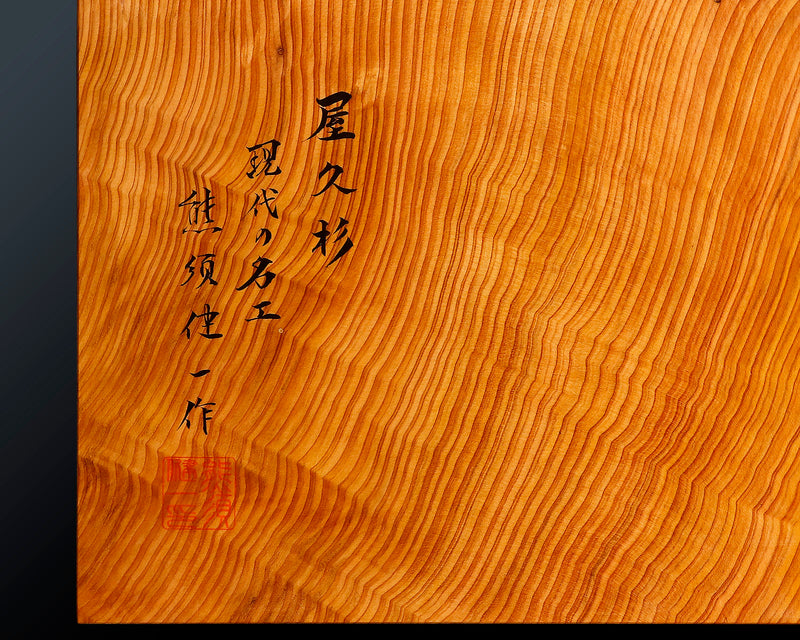 屋久杉
現代の名工
熊須健一作